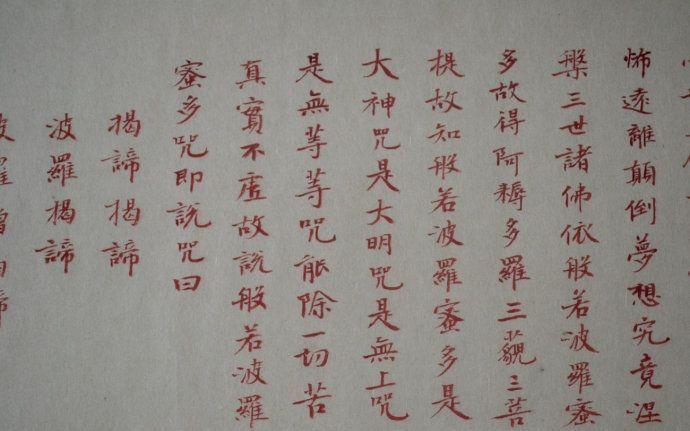 怖遠離顛倒夢想究竟涅
槃三世諸佛依般若波羅蜜
多故得阿耨多羅三藐三菩
提故知般若波羅蜜多是
大神咒是大明咒是無上咒
是無等等咒能除一切苦
真實不虛故說般若波羅
蜜多咒即說咒曰
揭諦揭諦
波羅揭諦